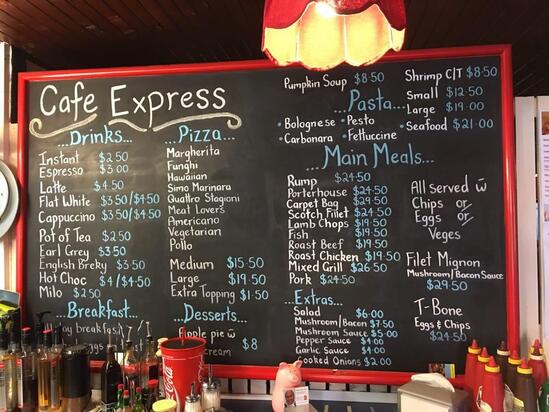 Cafe Express
...Drinks...
Instant $2.50
Espresso $3.00
Latte $4.50
Flat White $3.50/$4.50
Cappuccino $3.50/$4.50
Pot of Tea $2.50
Earl Grey $3.50
English Breky $3.50
Hot Choc $4/$4.50
Milo $2.50
Breakfast...
breakfast
...Pizza...
Margherita
Funghi
Hawaiian
Simo Marinara
Quattro Stagioni
Meat Lovers
Americano
Vegetarian
Pollo
Medium $15.50
Large $19.50
Extra Topping $1.50
...Desserts...
Apple pie w̄
cream $8
Pumpkin Soup $8.50
Shrimp C/T $8.50
...Pasta...
Small $12.50
Large $19.00
• Bolognese • Pesto
• Carbonara • Fettuccine
• Seafood $21.00
...Main Meals...
Rump $24.50
Porterhouse $24.50
Carpet Bag $29.50
Scotch Fillet $24.50
Lamb Chops $19.50
Fish $19.50
Roast Beef $19.50
Roast Chicken $19.50
Mixed Grill $26.50
Pork $24.50
All served w̄
Chips or
Eggs or
Veges
Filet Mignon
Mushroom/Bacon Sauce
$29.50
T-Bone
Eggs & Chips
$24.50
...Extras...
Salad $6.00
Mushroom/Bacon $7.50
Mushroom Sauce $5.00
Pepper Sauce $4.00
Garlic Sauce $4.00
Cooked Onions $2.00